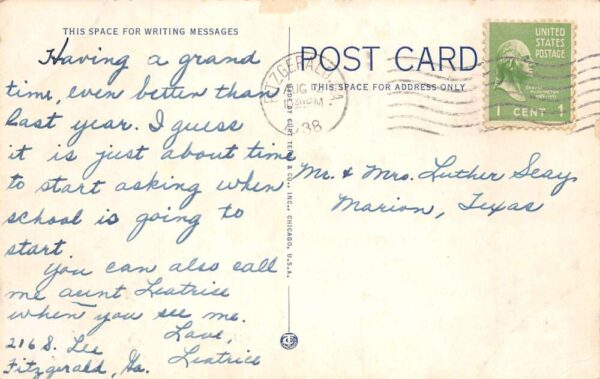 THIS SPACE FOR WRITING MESSAGES
Having a grand
time, even better than
last year. I guess
it is just about time
to start asking when
school is going to
start.
You can also call
me aunt Leatrice
when you see me.
Love,
Leatrice
216 S. Lee
Fitzgerald, Ga.
MADE BY CURT TEICH & CO., INC., CHICAGO, U.S.A.
POST CARD
THIS SPACE FOR ADDRESS ONLY
FITZGERALD, GA
AUG
PM
38
UNITED
STATES
POSTAGE
1 CENT 1
Mr. & Mrs. Luther Seay
Marion, Texas